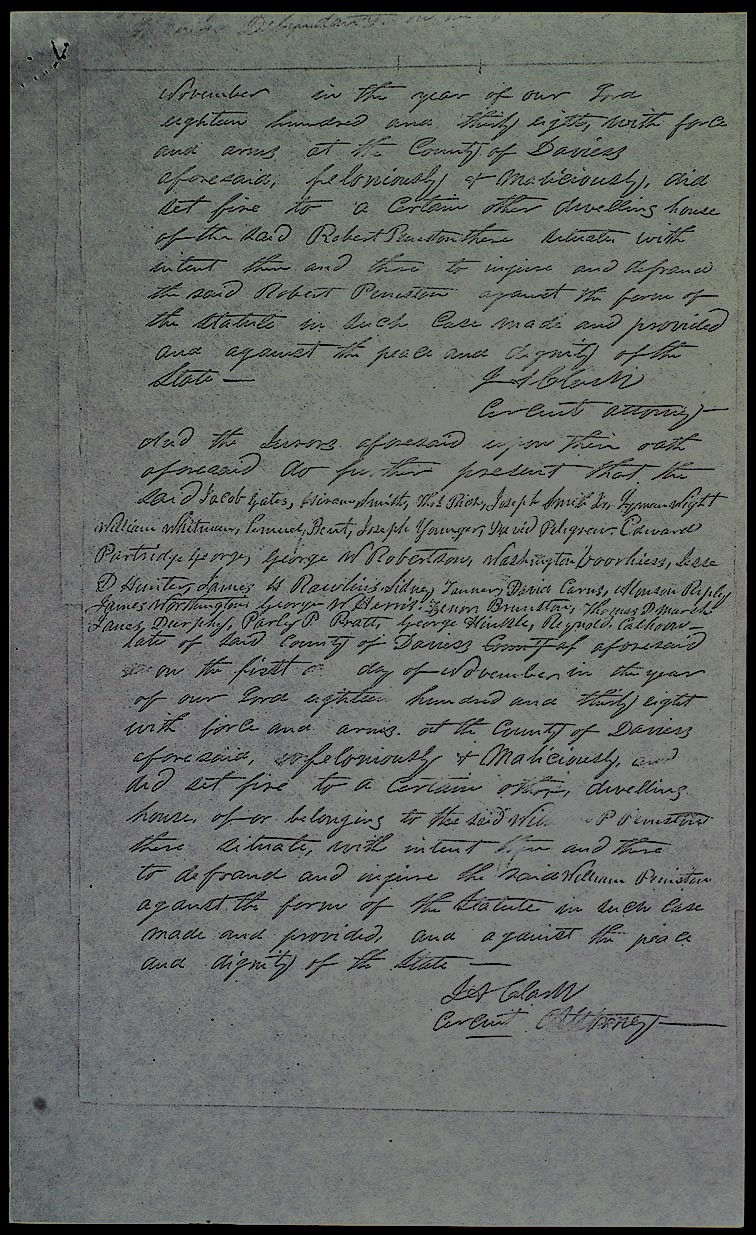 November in the year of our Lord
eighteen hundred and thirty eight, with force
and arms at the County of Daviess
aforesaid, feloniously & Maliciously, did
set fire to a Certain other dwelling house
of the said Robert Peniston there situate with
intent then and there to injure and defraud
the said Robert Peniston against the form of
the statute in such Case made and provided
and against the peace and dignity of the
State — J A Clark
Circuit attorney —
And the Jurors aforesaid upon their oath
aforesaid do further present that the
said Jacob Gates, Hiram Smith, Ths Rich, Joseph Smith Jr, Lyman Wight
William Whitman, Lemuel Bent, Joseph Younger, David Peligrew. Edward
Partridge George, George W Robertson, Washington Voorhiess, Jesse
D Hunter, James H Rawlins Sidney Tanner, David Carns, Alonson Ripley
James Worthington George W Herris. Benors Brunston, Thomas D Marsh
James Durphy, Parly P Pratt, George Hinkle, Reynold Calhoon —
late of said County of Daviess County of aforesaid
on the first day of November in the year
of our Lord eighteen hundred and thirty eight
with force and arms. at the County of Daviess
aforesaid, feloniously & Maliciously, and
did set fire to a Certain other, dwelling
house, of or belonging to the said P Peniston
there situate, with intent then and there
to defraud and injure the said William Peniston
against the form of the Statute in such Case
made and provided, and against the peace
and dignity of the State —
J A Clark
Circuit Attorney —